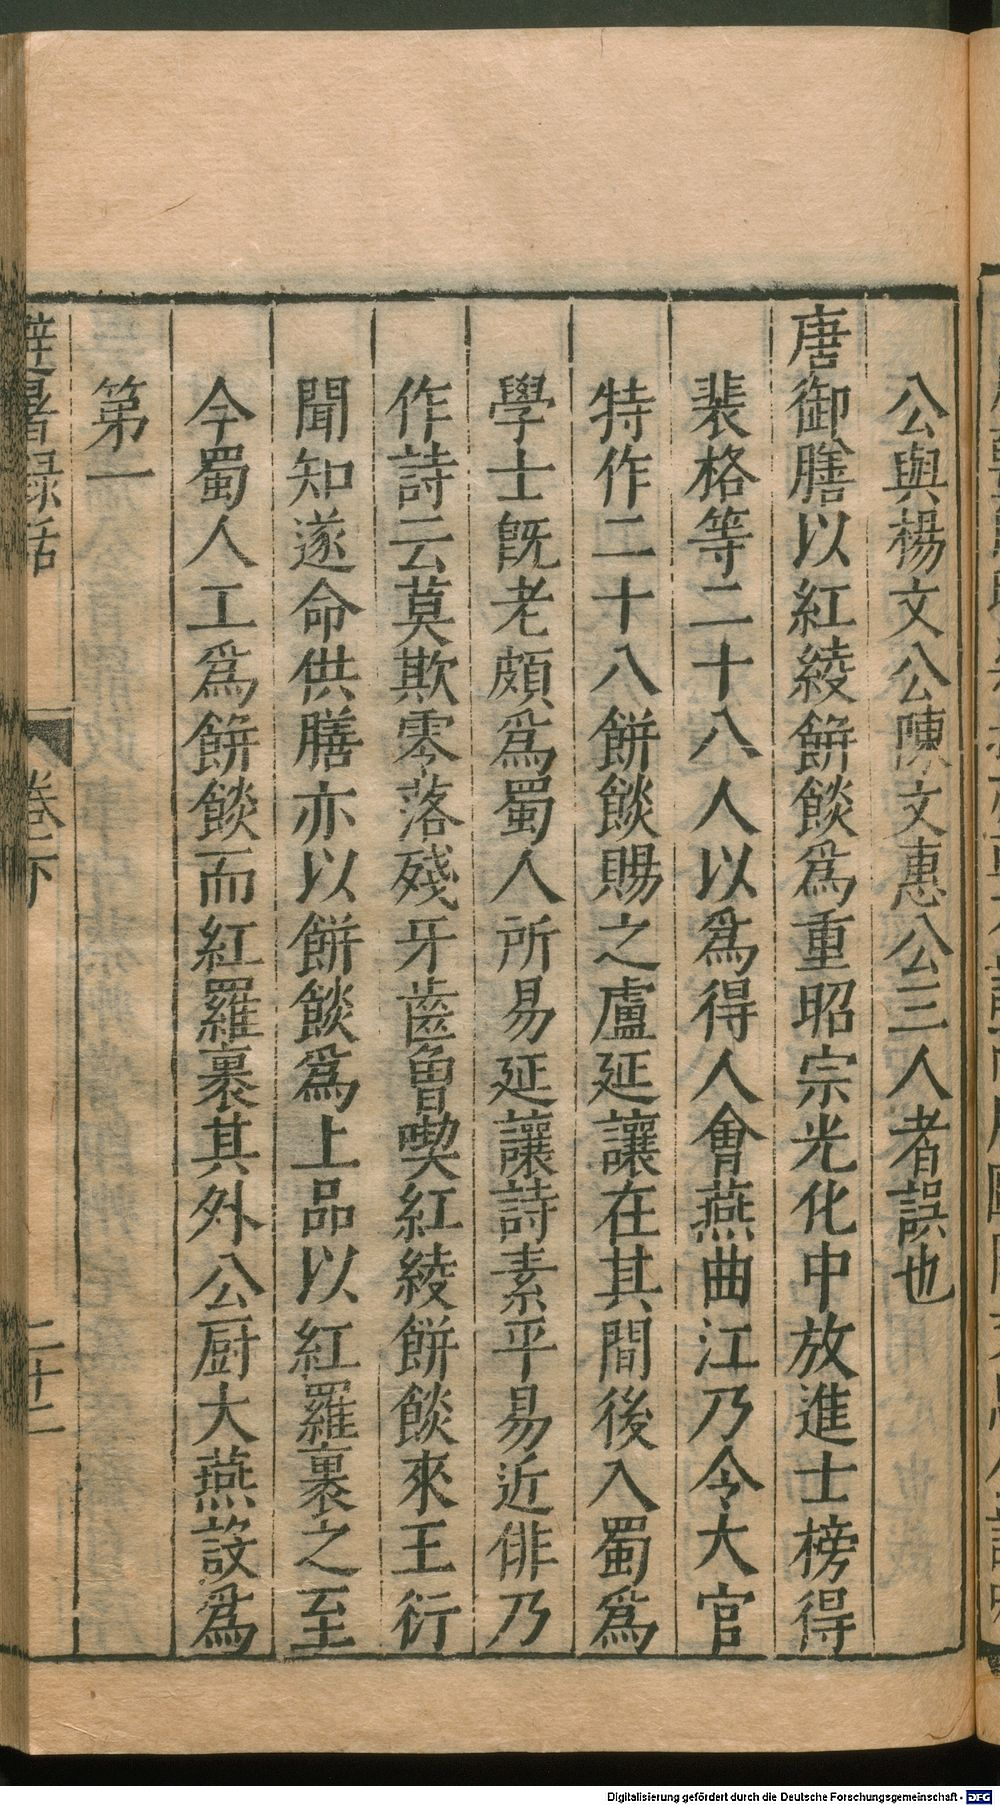 公與楊文公陳文惠公三人者誤也
唐御膳以紅綾餅餤爲重昭宗光化中放進士榜得
裴格等二十八人以爲得人會燕曲江乃令大官
特作二十八餅餤賜之盧延讓在其間後入蜀爲
學士旣老頗爲蜀人所易延讓詩素平易近俳乃
作詩云莫欺零落殘牙齒曾喫紅綾餅餤來王衍
聞知遂命供膳亦以餅餤爲上品以紅羅裹之至
今蜀人工爲餅餤而紅羅裹其外公厨大燕設爲
第一
避暑錄話
卷下
二十二
Digitalisierung gefördert durch die Deutsche Forschungsgemeinschaft - DFG